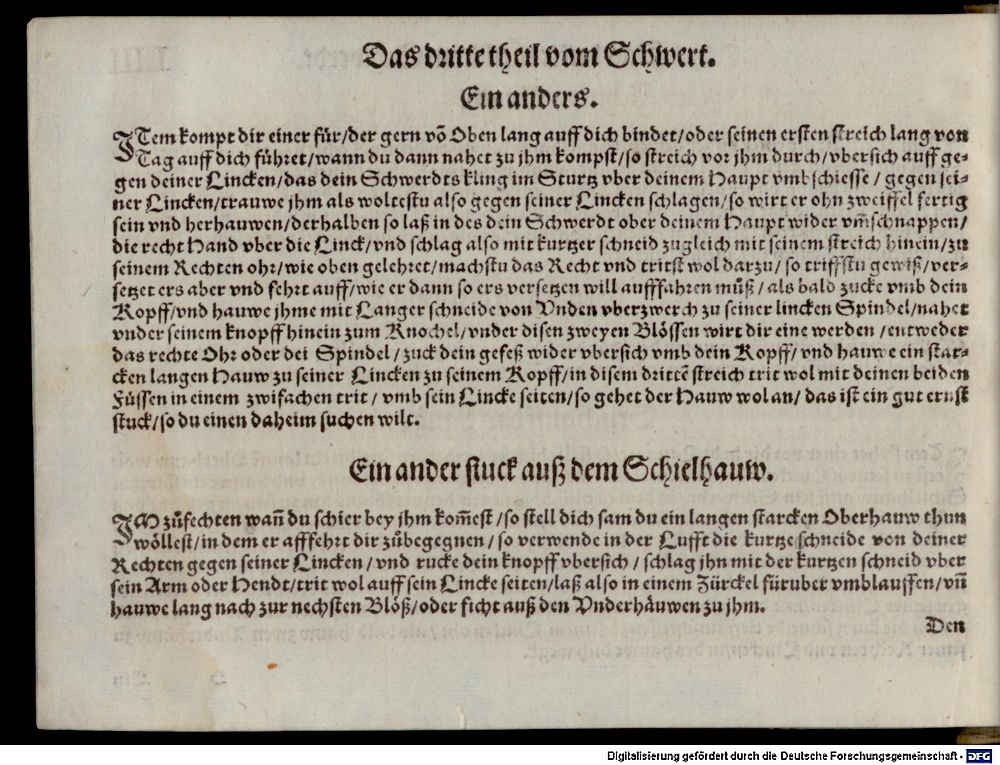 Das dritte theil vom Schwert.
Ein anders.
ITem kompt dir einer für/der gern võ Oben lang auff dich bindet/oder seinen ersten streich lang von
Tag auff dich führet/wann du dann nahet zu jhm kompst/so streich vor jhm durch/vbersich auff ge-
gen deiner Lincken/das dein Schwerdts kling im Sturtz vber deinem Haupt vmbschiesse / gegen sei-
ner Lincken/trauwe jhm als woltestu also gegen seiner Lincken schlagen/so wirt er ohn zweiffel fertig
sein vnd herhauwen/derhalben so laß in des dein Schwerdt ober deinem Haupt wider vm̃schnappen/
die recht Hand vber die Linck/vnd schlag also mit kurtzer schneid zugleich mit seinem streich hinein/zu
seinem Rechten ohr/wie oben gelehret/machstu das Recht vnd tritst wol darzu/ so triffstu gewiß/ver-
setzet ers aber vnd fehrt auff/wie er dann so ers versetzen will aufffahren můß/ als bald zucke vmb dein
Kopff/vnd hauwe jhme mit Langer schneide von Vnden vberzwerch zu seiner lincken Spindel/nahet
vnder seinem knopff hinein zum Knochel/vnder disen zweyen Blössen wirt dir eine werden /entweder
das rechte Ohr oder dei Spindel /zuck dein gefeß wider vbersich vmb dein Kopff/ vnd hauwe ein star-
cken langen Hauw zu seiner Lincken zu seinem Kopff/in disem drittẽ streich trit wol mit deinen beiden
Füssen in einem zwifachen trit / vmb sein Lincke seiten/so gehet der Hauw wol an/ das ist ein gut ernst
stuck/so du einen daheim suchen wilt.
Ein ander stuck auß dem Schielhauw.
IM zůfechten wañ du schier bey jhm kom̃est /so stell dich sam du ein langen starcken Oberhauw thun
wöllest/in dem er afffehrt dir zůbegegnen / so verwende in der Lufft die kurtze schneide von deiner
Rechten gegen seiner Lincken/ vnd rucke dein knopff vbersich / schlag jhn mit der kurtzen schneid vber
sein Arm oder Hendt/trit wol auff sein Lincke seiten/laß also in einem Zürckel fürüber vmblauffen/vñ
hauwe lang nach zur nechsten Blöß/oder ficht auß den Vnderhäuwen zu jhm.
Den
Digitalisierung gefördert durch die Deutsche Forschungsgemeinschaft - DFG